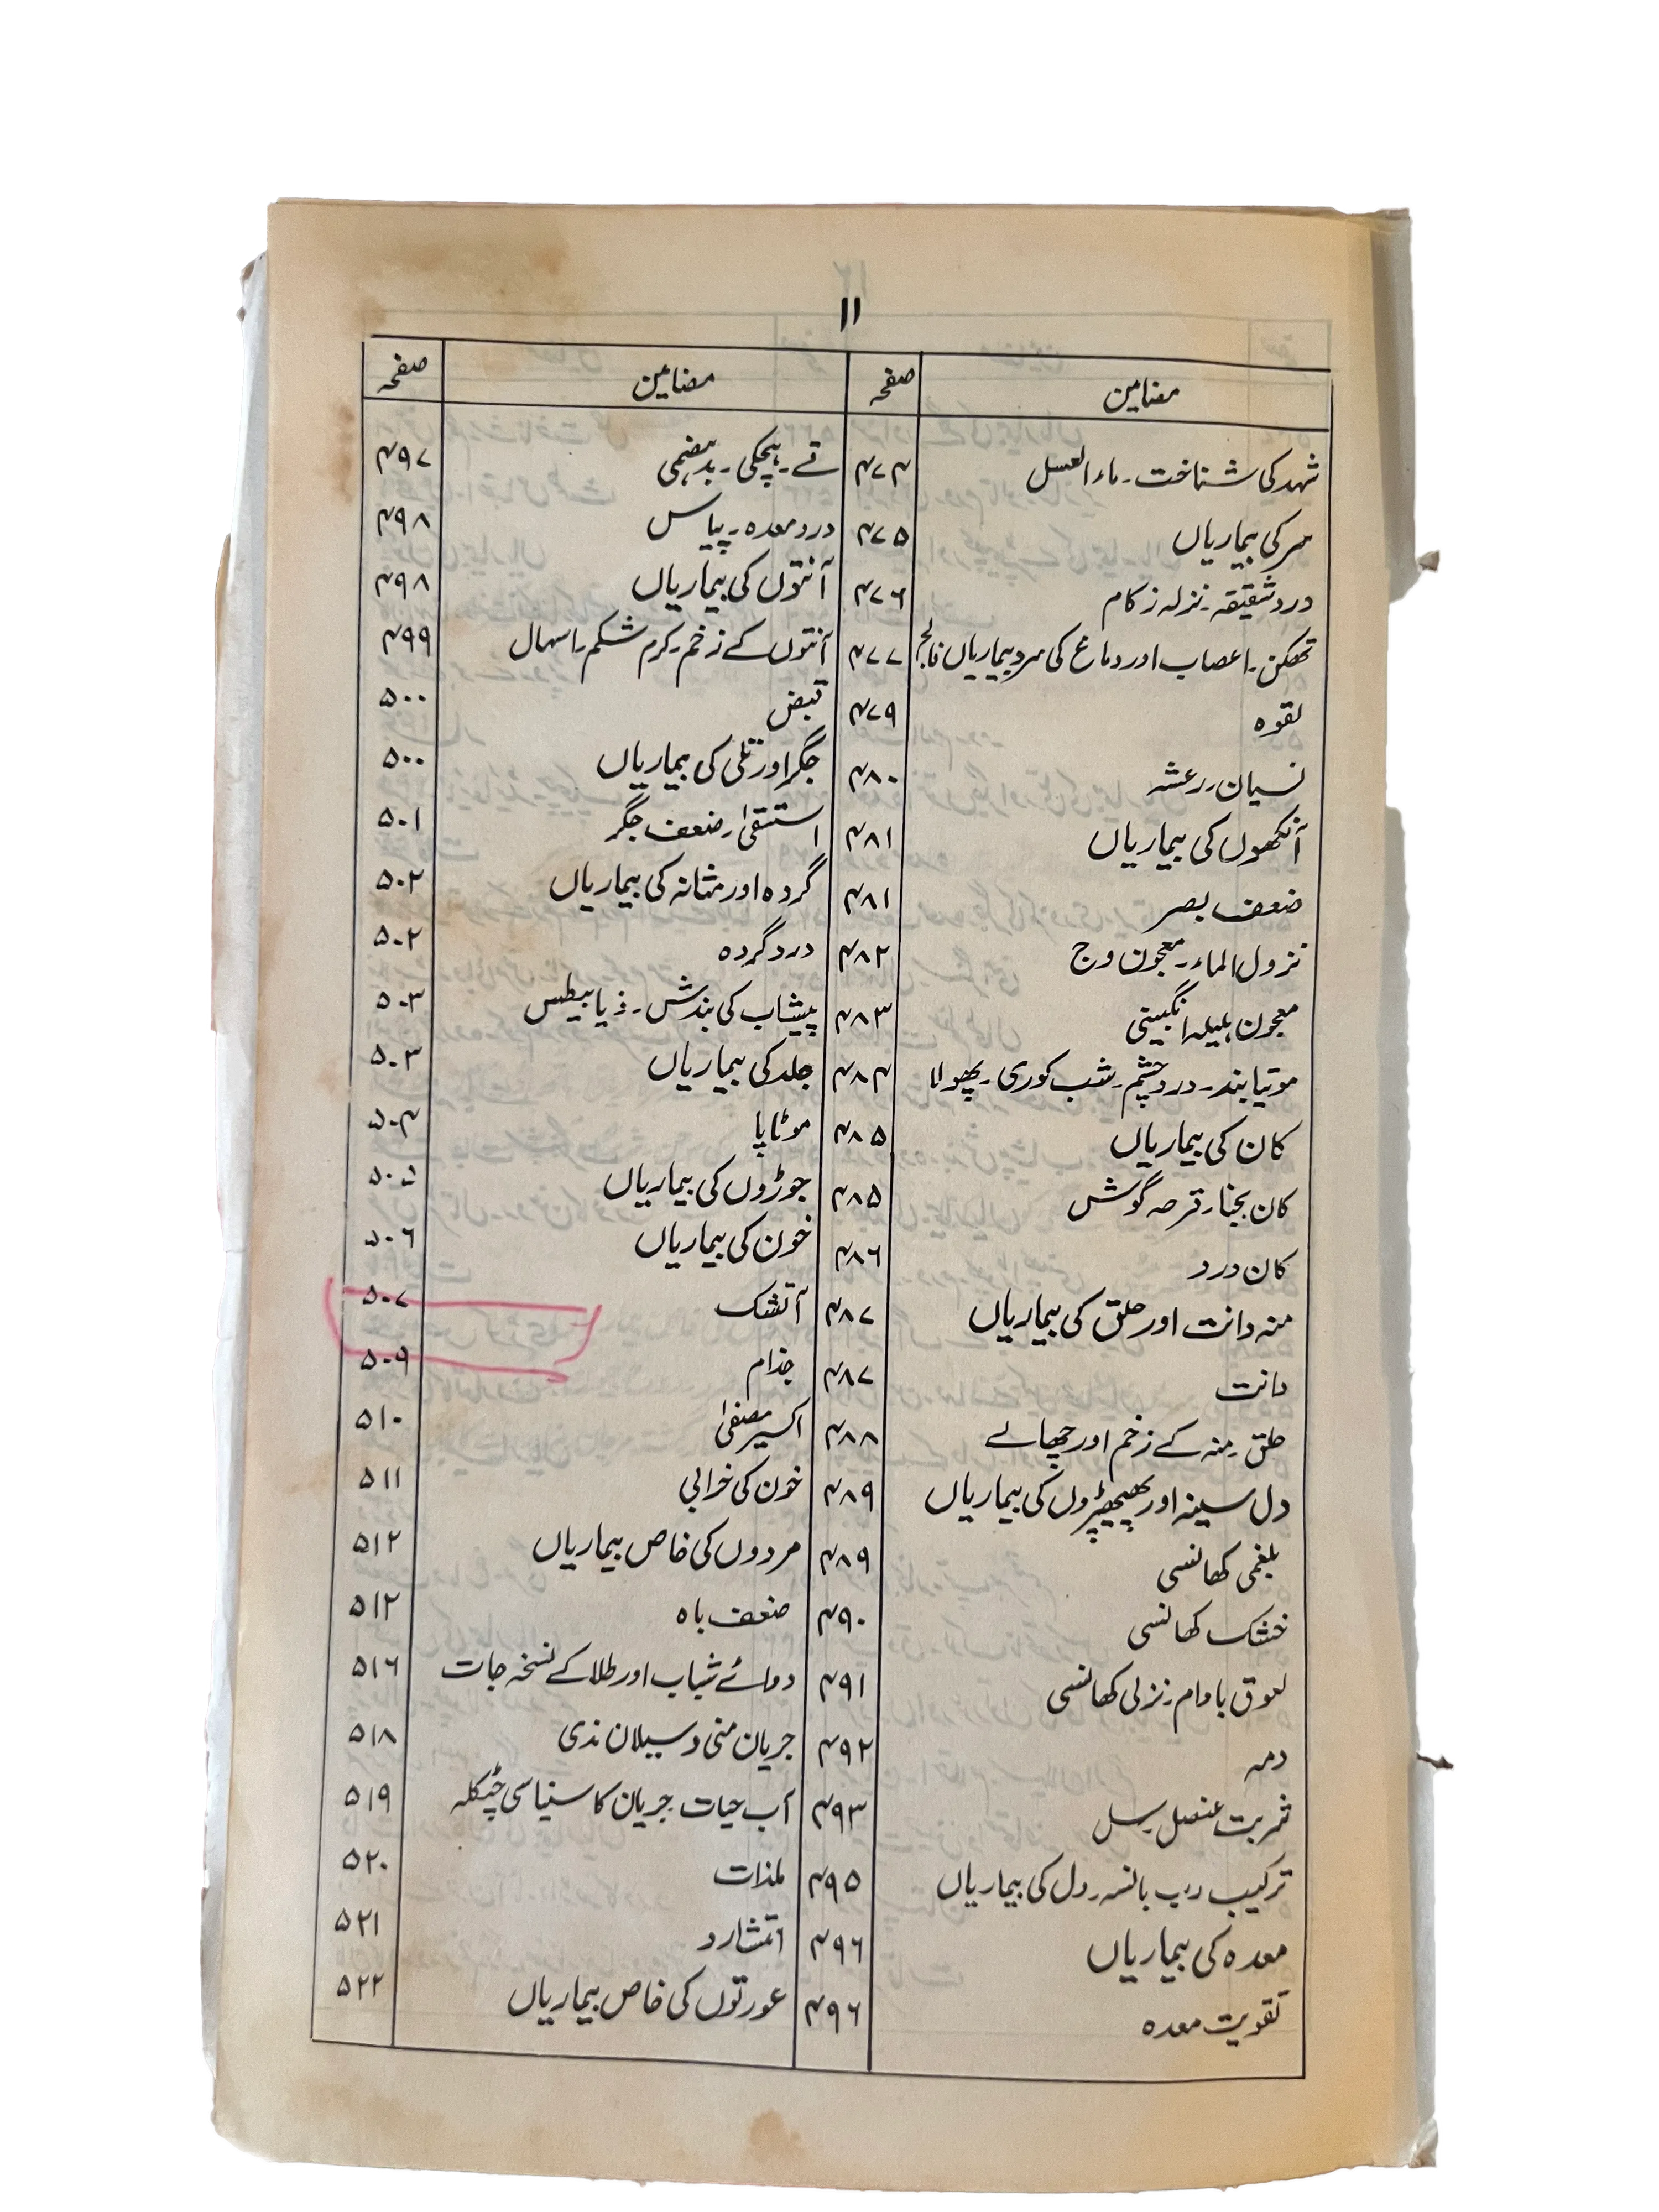 ۱۱
مضامین صفحہ مضامین صفحہ
شہد کی شناخت۔ ماء العسل ۴۷۴ قے۔ ہچکی۔ بدہضمی ۴۹۷
سر کی بیماریاں ۴۷۵ درد معدہ۔ پیاس ۴۹۸
درد شقیقہ۔ نزلہ زکام ۴۷۶ آنتوں کی بیماریاں ۴۹۸
تھکن۔ اعصاب اور دماغ کی سرد بیماریاں فالج ۴۷۷ آنتوں کے زخم۔ کرم شکم۔ اسہال ۴۹۹
لقوہ ۴۷۹ قبض ۵۰۰
نسیان۔ رعشہ ۴۸۰ جگر اور تلی کی بیماریاں ۵۰۰
آنکھوں کی بیماریاں ۴۸۱ استسقیٰ۔ ضعف جگر ۵۰۱
ضعف بصر ۴۸۱ گردہ اور مثانہ کی بیماریاں ۵۰۲
نزول الماء۔ معجون وج ۴۸۲ درد گردہ ۵۰۲
معجون ہلیلہ انگبیتی ۴۸۳ پیشاب کی بندش۔ ذیابیطس ۵۰۳
موتیا بند۔ درد چشم۔ شب کوری۔ پھولا ۴۸۴ جلد کی بیماریاں ۵۰۳
کان کی بیماریاں ۴۸۵ موٹاپا ۵۰۴
کان بجنا۔ قرحہ گوش ۴۸۵ جوڑوں کی بیماریاں ۵۰۵
کان درد ۴۸۶ خون کی بیماریاں ۵۰۶
منہ دانت اور حلق کی بیماریاں ۴۸۷ آتشک ۵۰۷
دانت ۴۸۷ جذام ۵۰۹
حلق۔ منہ کے زخم اور چھالے ۴۸۸ اکسیر مصفیٰ ۵۱۰
دل سینہ اور پھیپھڑوں کی بیماریاں ۴۸۹ خون کی خرابی ۵۱۱
بلغمی کھانسی ۴۸۹ مردوں کی خاص بیماریاں ۵۱۲
خشک کھانسی ۴۹۰ ضعف باہ ۵۱۲
لعوق بادام۔ نزلی کھانسی ۴۹۱ دوائے شباب اور طلا کے نسخہ جات ۵۱۶
دمہ ۴۹۲ جریان منی و سیلان مذی ۵۱۸
شربت عنصل۔ سل ۴۹۳ آب حیات۔ جریان کا سنیاسی چٹکلہ ۵۱۹
ترکیب رب بانسہ۔ دل کی بیماریاں ۴۹۵ ملذات ۵۲۰
معدہ کی بیماریاں ۴۹۶ ۵۲۱
تقویت معدہ ۴۹۶ عورتوں کی خاص بیماریاں ۵۲۲